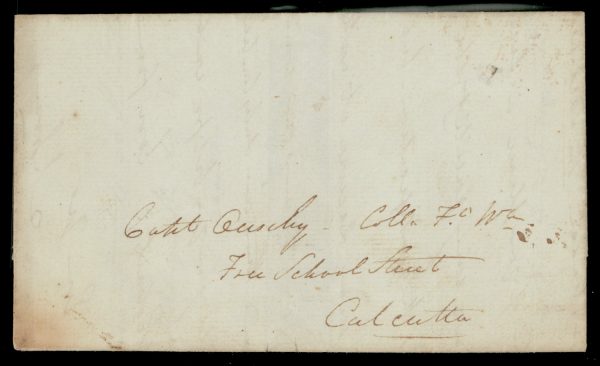 Capt Ouseley - Coll. Ft. Wm.
Free School Street
Calcutta